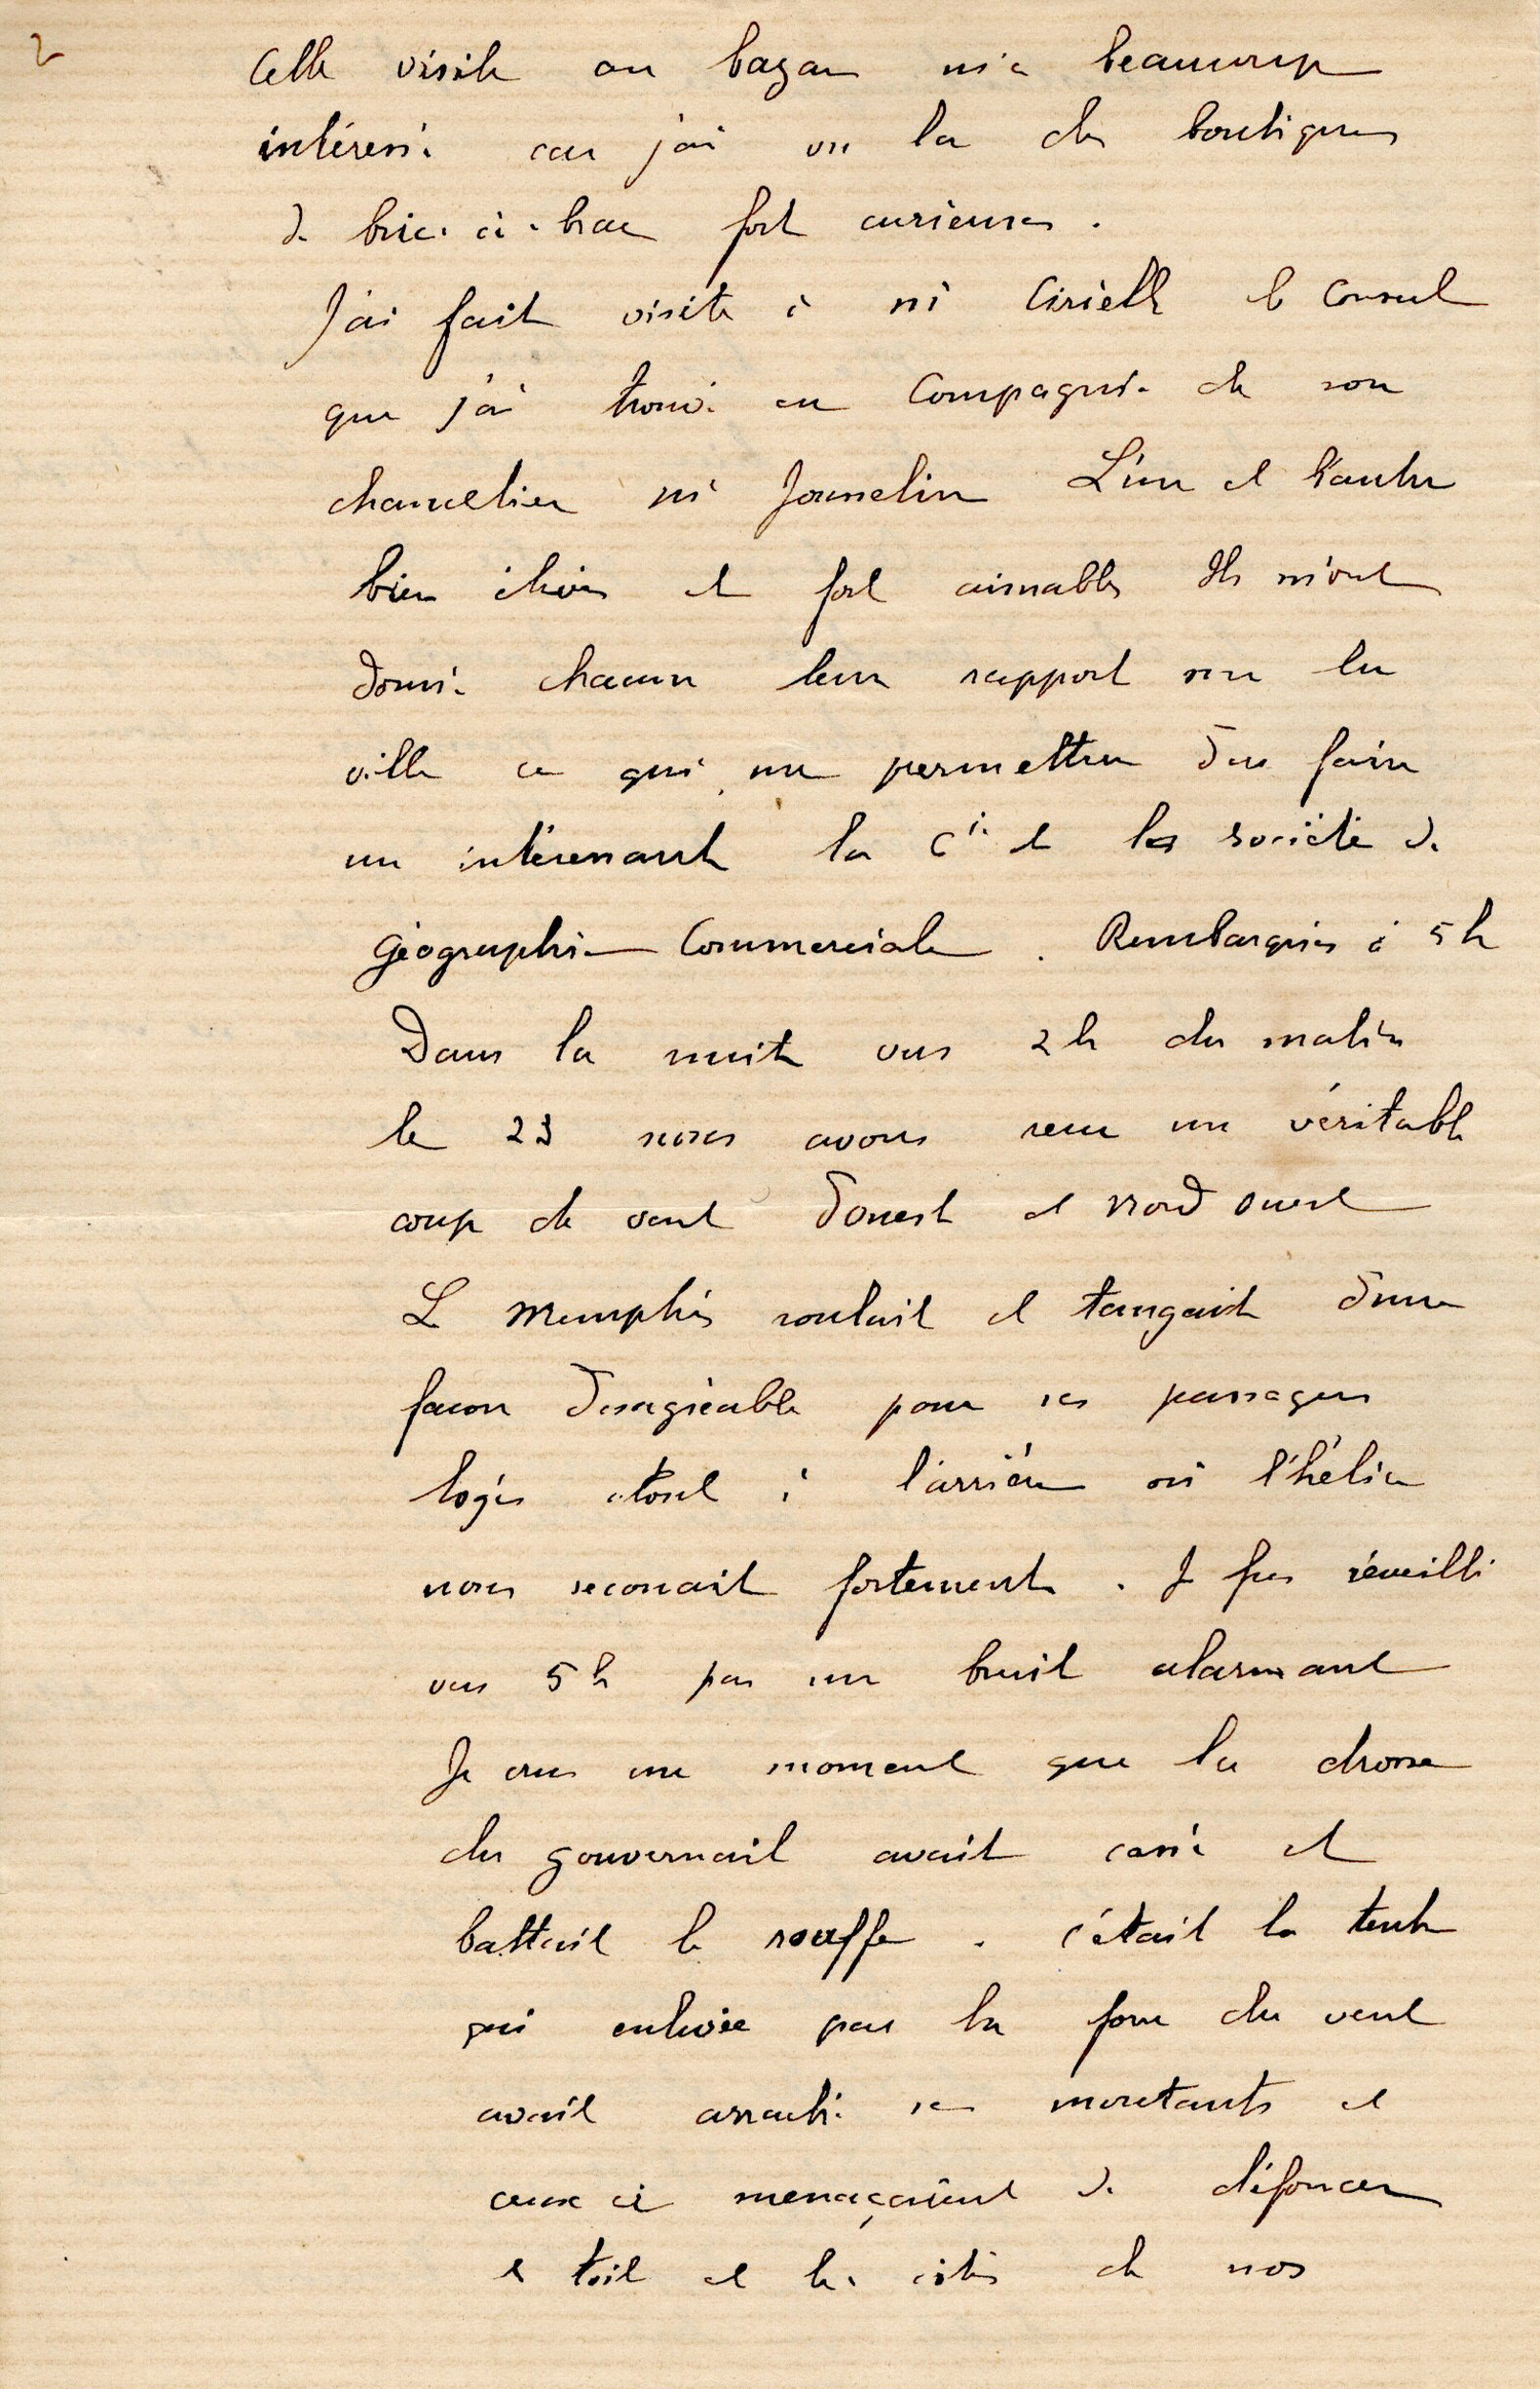 2
Cette visite au bazar m'a beaucoup
intéressé car j'ai vu la des boutiques
de bric-à-brac fort curieuses.
J'ai fait visite à M Cirielli le Consul
que j'ai trouvé en Compagnie de son
chancelier M Jousselin L'un et l'autre
bien élevés et fort aimables Ils m'ont
donné chacun leur rapport sur la
ville ce qui me permettra d'en faire
un intéressant la Cie et la société de
géographie Commerciale. Rembarqués à 5h
Dans la nuit vers 2h du matin
le 23 nous avons reçu un véritable
coup de vent d'ouest et nord ouest
Le Memphis roulait et tangait d'une
facon desagréable pour ses passagers
logés à l'arrière où l'hélice
nous secouait fortement. Je fus réveillé
vers 5h par un bruit alarmant
Je crus un moment que la drosse
du gouvernail avait cassé et
battait le . c'était la tente
qui enlevée par la force du vent
avait arraché ses montants et
ceux ci menaçaient de défoncer
le toit et les côtés de nos